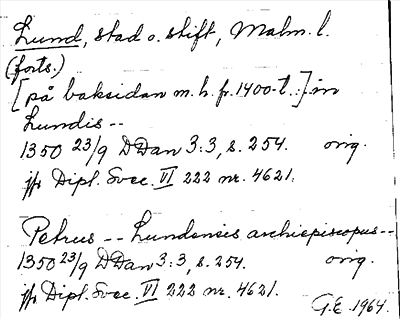 Lund, stad o. stift, Malm. l.
(forts.)
[på baksidan m. h. fr. 1400-t.:] in
Lundis --
1350 23/9 DDan 3:3, s. 254. orig.
jfr Dipl. Svec. VI 222 nr. 4621.
Petrus -- Lundensis archiepiscopus --
1350 23/9 DDan 3:3, s. 254. orig.
jfr Dipl. Svec. VI 222 nr. 4621.
G.E. 1964.